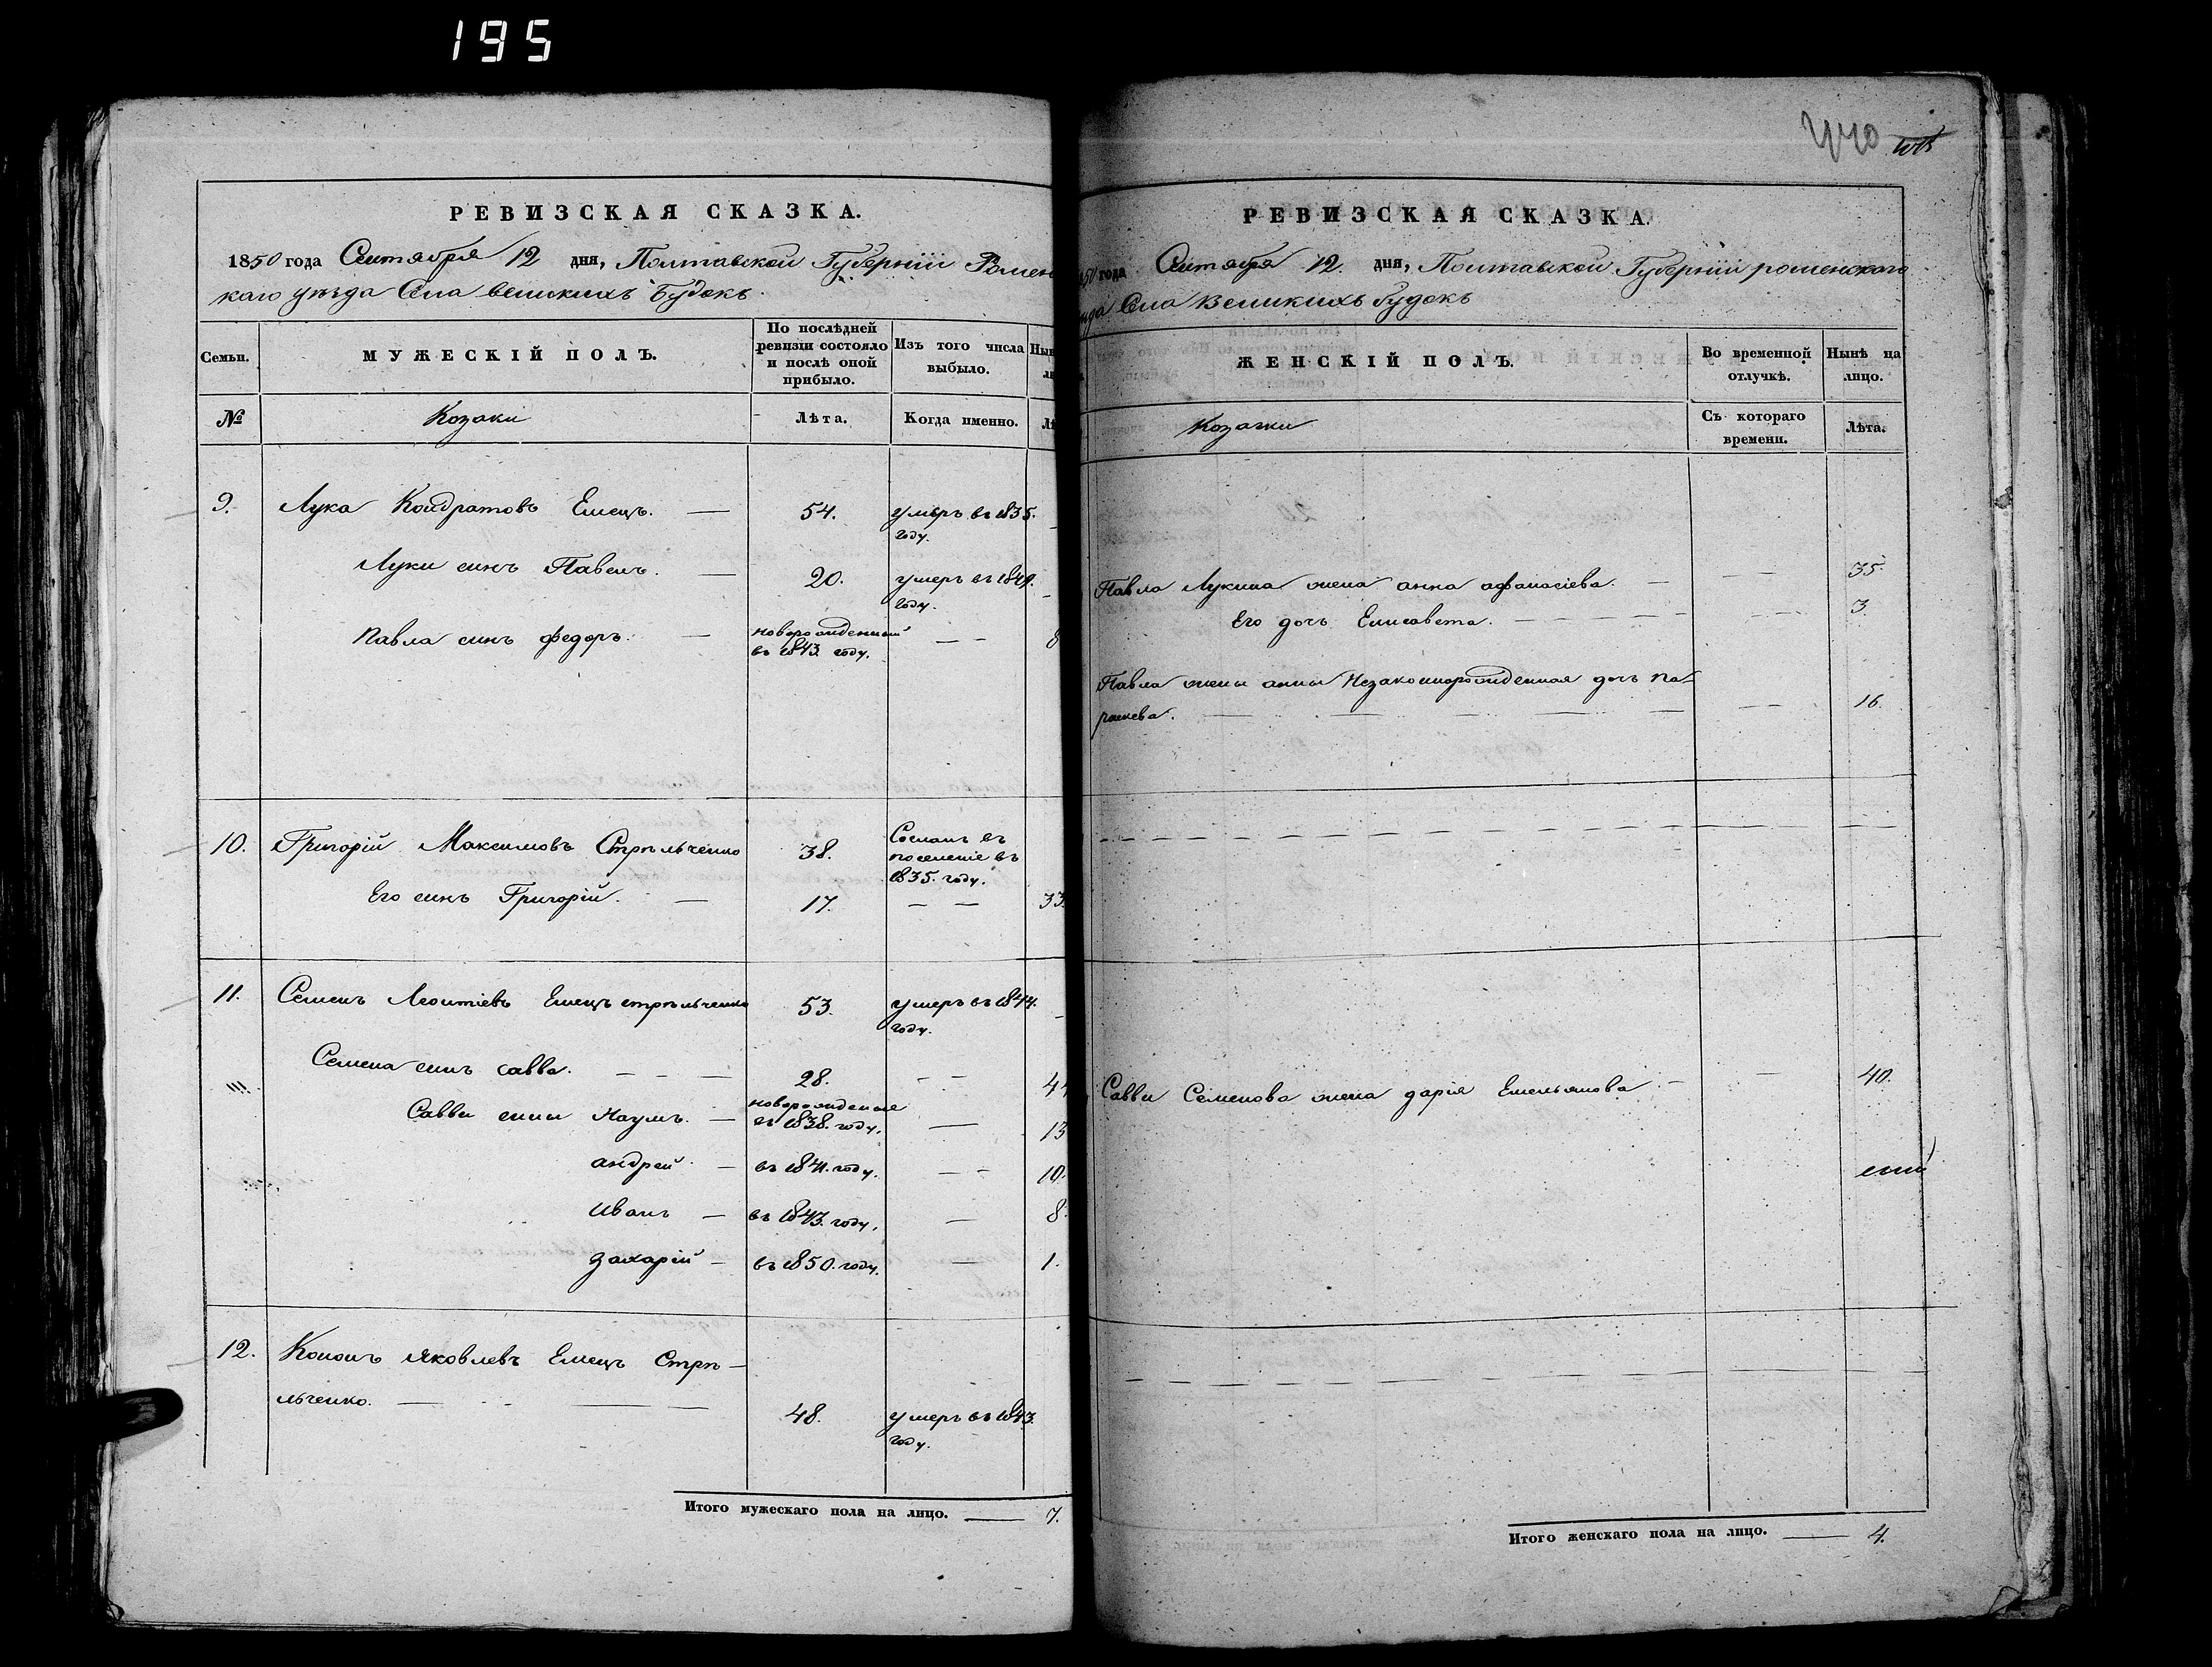 195
РЕВИЗСКАЯ СКАЗКА.
1850 года Сентября 12 дня, Полтавской Губерніи Ромен
каго уѣзда Села великихъ Будокъ.
Семьи.
МУЖЕСКІЙ ПОЛЪ.
По послѣдней
ревизіи состояло
и послѣ оной
прибыло.
Изъ того числа
выбыло.
№
Козаки
Лѣта.
Когда именно.
9. Лука Кондратовъ Емецъ. — 54. умеръ въ 1835.
году.
Луки синъ Павелъ. — 20. умеръ въ 1849.
году.
Павла синъ федоръ. — новорожденный
въ 1843. году. — — 8
10. Григорій Максимовъ Стрѣльченко 38. Сосланъ въ
поселеніе въ
1835. году.
Его синъ Григорій. — 17. — — 33.
11. Семенъ Леонтіевъ Емецъ стрѣльченко 53. умеръ въ 1844.
году.
Семена синъ савва. — — — 28. — — 44
Саввы сины Наумъ. — новорожденые
въ 1838. году. — 13
андрей — въ 1841. году. — — 10.
иванъ — въ 1843. году. — 8.
захарій — въ 1850. году. — 1.
12. Кононъ Яковлевъ Емецъ Стрѣ-
льченко. — 48. умеръ въ 1843.
году.
Итого мужескаго пола на лицо. — 7.
440
РЕВИЗСКАЯ СКАЗКА.
850 года Сентября 12. дня, Полтавской Губерніи роменскаго
ѣзда Села Великихъ будокъ
ЖЕНСКІЙ ПОЛЪ.
Во временной
отлучкѣ.
Нынѣ на
лицо.
Козачки
Съ котораго
времени.
Лѣта.
Павла Лукина жена анна афанасіева. — — — 35.
Его дочь Елисавета. — — — 3.
Павла жены анны Незаконнорожденная дочь Па-
раскева. — — — 16.
Саввы Семенова жена дарія Емельянова — — 40.
Итого женскаго пола на лицо. — 4.